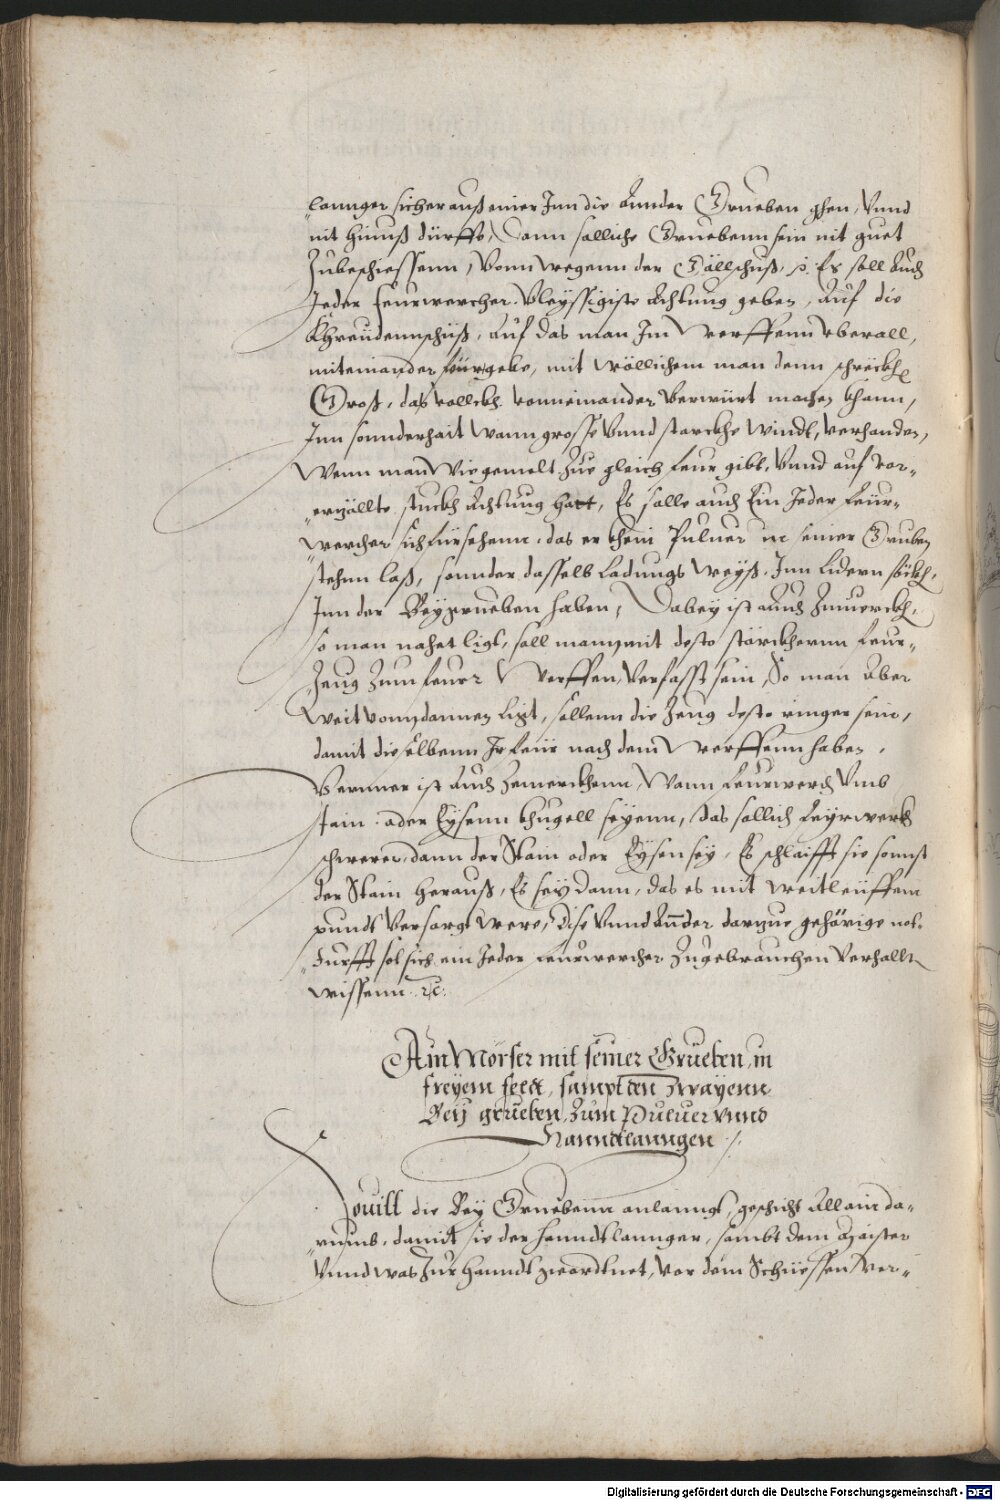 lannger sicher auß einer Inn die annder Grueben gehen, Vnnd
nit hinuß dürffe, Dann solliche Gruebenn sein nit guet
Zubeschiessenn, Vonn wegenn der Göllschuß. Es soll auch
Jeder feurwercher Vleyssigiste Achtung geben, Auf die
Khreüdennschüß, Auf das man Im Werffenn vberall,
miteinander feurgebe, mit wöllichem man denn schröckh
Groß, das vollckh vonneinander Verwürt machen khann,
Inn sonnderhait wann grosse Vnnd starckhe Windt, verhanden,
Wenn man Wie gemelt Zue gleich feur gibt, Vnnd auf vor-
erzällte stuckh Achtung hatt, Es solle auch Ein Jeder feür-
wercher sich fürsehenn, das er khein Puluer in seiner Gruben
stehnn laß, sonnder dasselb Ladungs Weyß, Inn Lidern söckh,
Inn der Beygrueben haben, Dabey ist auch Zumerckh,
so man nahet ligt, soll man mit desto störckhernn feur-
Zeug Zum feurr Werffen, Verfasst sein, So man Aber
Weit vonn dannen Ligt, sollenn die Zeug desto ringer sein,
damit dieselbenn Ir feür nach dem Werffenn haben,
Vernner ist Auch Zemerckhenn, Wann feurwerch Vmb
stain oder Eysenn khugell seyenn, das sollich feyrwerch
schwerer, dann der Stain oder Eysen sey, Es schlaifft sie sonnst
der Stain herauß, Es sey dann, das es mit weitleüffem
pundt Versorgt were, Dise Vnnd Annder darzue gehörige not-
durfft sol sich ein Jeder feurwercher Zugebrauchen Verhallt
wissenn. etc:
Ain Mörser mit seiner Grueben, in
freyem feldt, sampt den Zwayenn
Bey grueben, Zum Puluer vnnd
Hanndlanngen ./.
Souill die Bey Gruebenn anlanngt, geschicht Allain da-
rumb, damit sie der hanndtlannger, sambt dem Maister
Vnnd was Zur hanndt geordtnet, Vor dem Schüessen Ver-
Digitalisierung gefördert durch die Deutsche Forschungsgemeinschaft - DFG